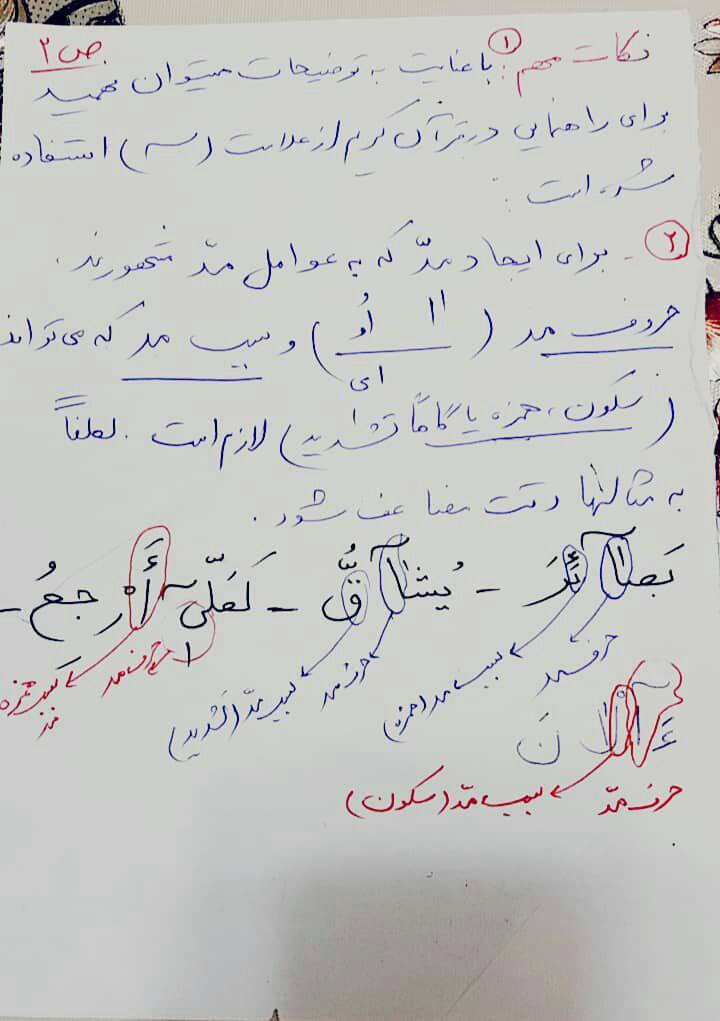 ص ۲
نکات مهم: ۱ با عنایت به توضیحات میتوان فهمید
برای راهنمایی در قرآن کریم از علامت (ــٓـ) استفاده
شده است.
۲- برای ایجاد مدّ که به عوامل مدّ مشهورند.
حروف مد (اا اُو ای) و سبب مد که می تواند
(سکون، همزه یا گاهاً تشدید) لازم است. لطفاً
به مثالها دقت مضاعف شود.
بَصآئِرَ - یُشآقُّ - لَعَلّیٓ أَرجِعُ -
حرف مد سبب مد (همزه) حرف مد سبب مدّ (تشدید) حرف مد سبب همزه مد
ءَآلانَ
حرف مدّ سبب مدّ (سکون)